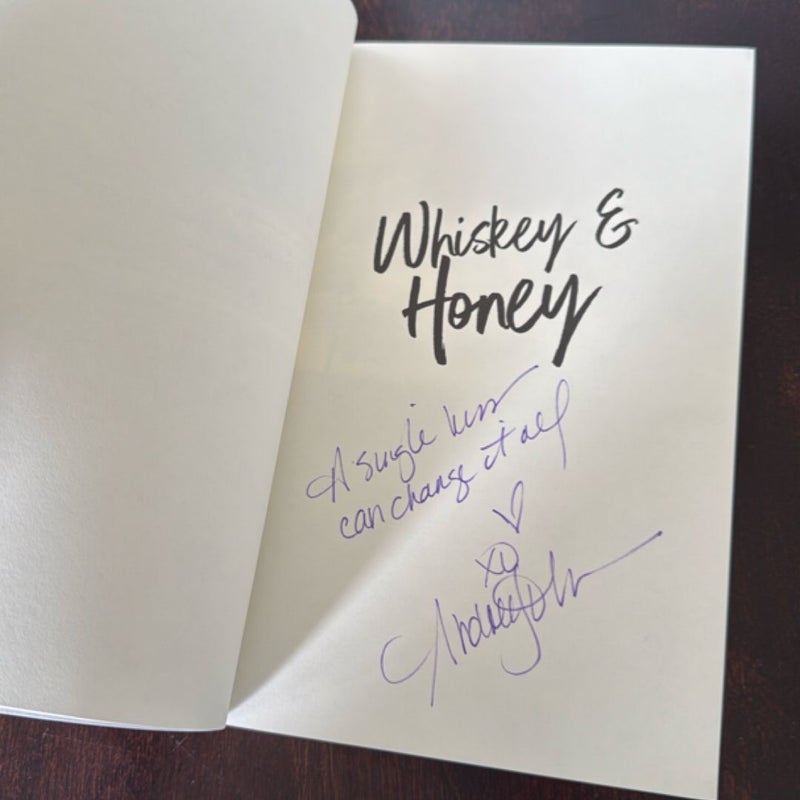 Whiskey &
Honey
A single kiss
can change it all
♡
xo
Andrea Joh